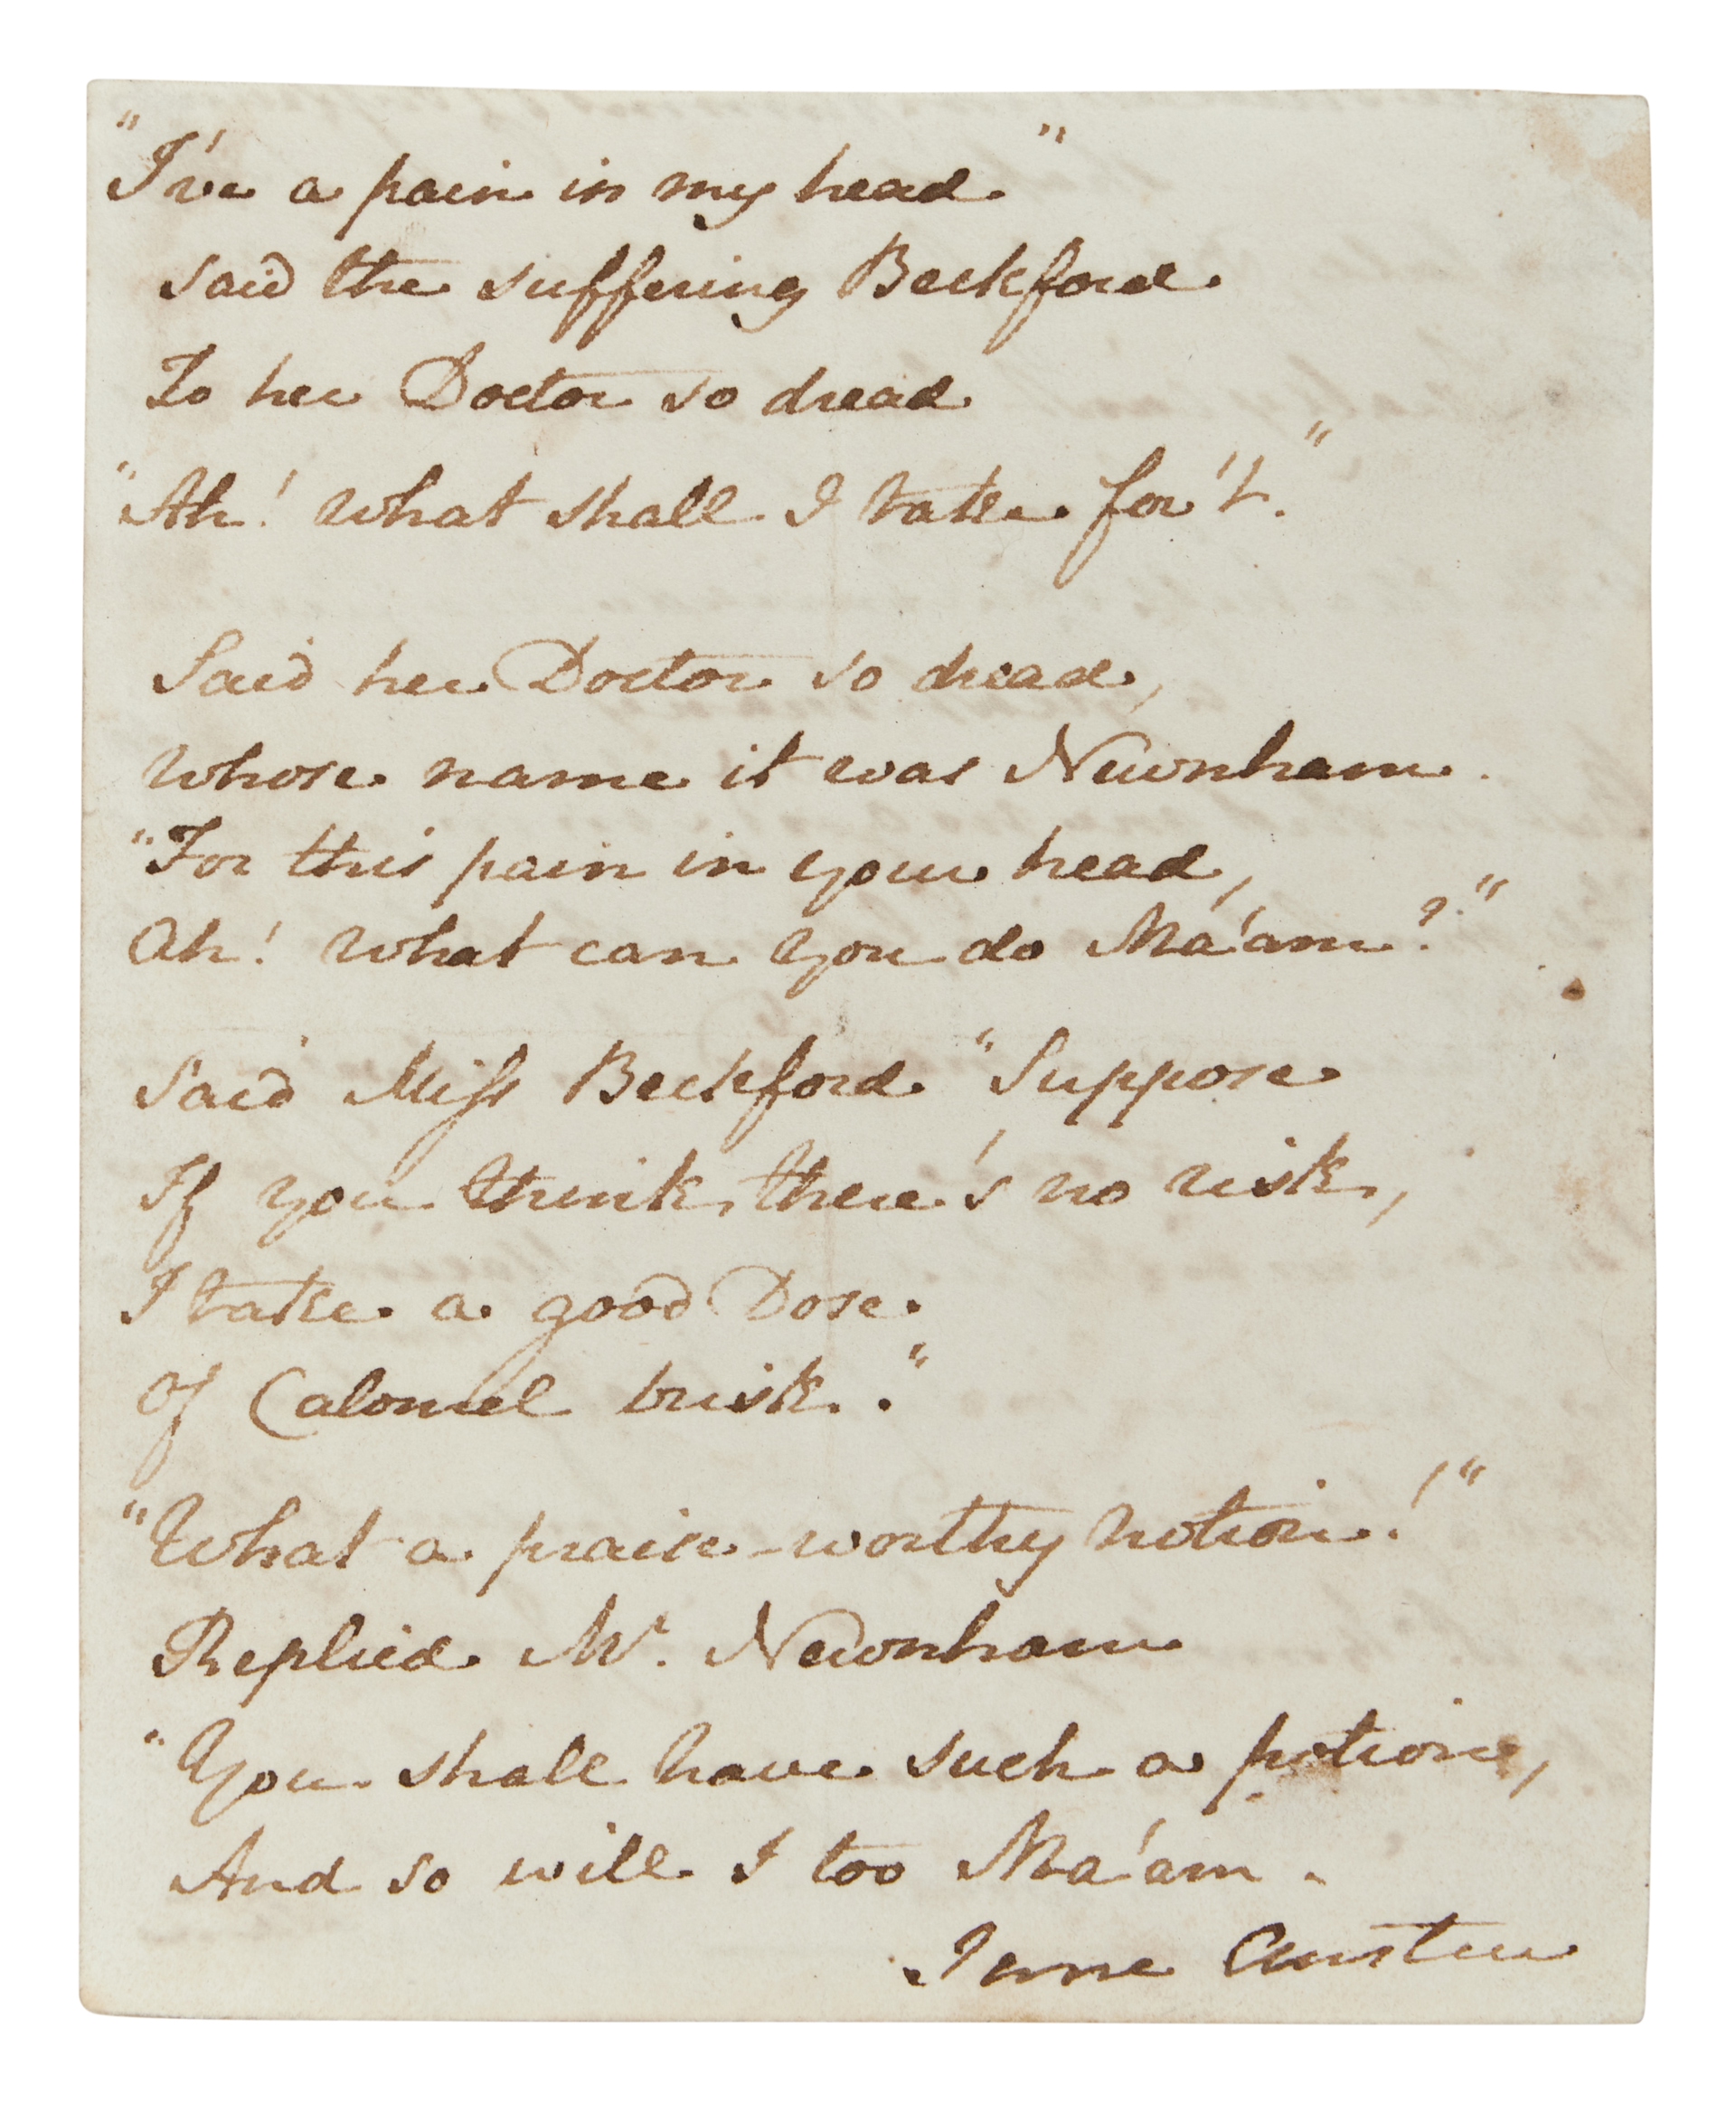 "I've a pain in my head"
said the suffering Beckford
To her Doctor so dread
"Ah! what shall I take for't."
Said her Doctor so dread,
Whose name it was Newnham.
"For this pain in your head,
Ah! what can you do Ma'am?."
Said Miss Beckford "Suppose
If you think there's no risk,
I take a good Dose
Of Calomel brisk."
"What a praise-worthy notion!"
Replied Mr. Newnham
"You shall have such a potion,
And so will I too Ma'am.
Jane Austen